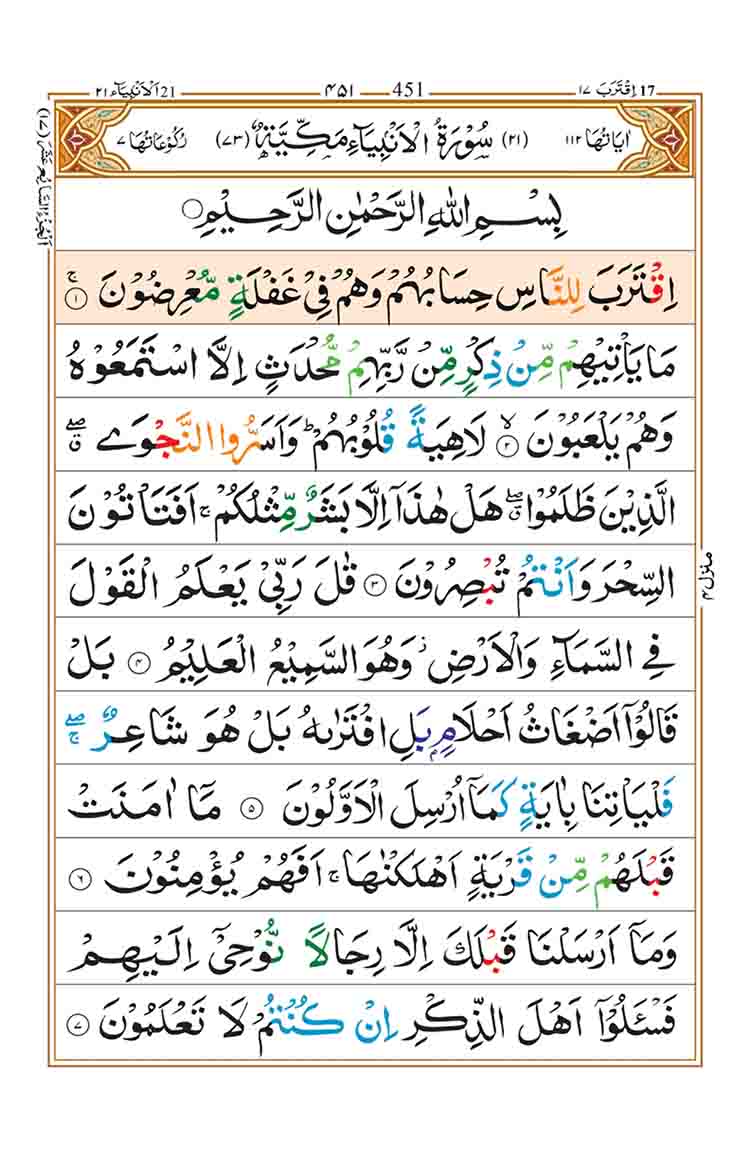 21 اَلْاَنْۢبِيَآء ٢١ ٤٥١ 451 اِقْتَرَبَ ١٧ 17
اٰيَاتُهَا ١١٢ (٢١) سُوْرَةُ الْاَنْۢبِيَآءِ مَكِّيَّةٌ (٧٣) رُكُوْعَاتُهَا ٧
بِسْمِ اللّٰهِ الرَّحْمٰنِ الرَّحِيْمِ ۝
اِقْتَرَبَ لِلنَّاسِ حِسَابُهُمْ وَهُمْ فِيْ غَفْلَةٍ مُّعْرِضُوْنَ ۚ ۝١
مَا يَاْتِيْهِمْ مِّنْ ذِكْرٍ مِّنْ رَّبِّهِمْ مُّحْدَثٍ اِلَّا اسْتَمَعُوْهُ
وَهُمْ يَلْعَبُوْنَ ۙ ۝٢ لَاهِيَةً قُلُوْبُهُمْ ؕ وَاَسَرُّوا النَّجْوَى ۖق
الَّذِيْنَ ظَلَمُوْا ۖق هَلْ هٰذَاۤ اِلَّا بَشَرٌ مِّثْلُكُمْ ۚ اَفَتَاْتُوْنَ
السِّحْرَ وَاَنْتُمْ تُبْصِرُوْنَ ۝٣ قٰلَ رَبِّيْ يَعْلَمُ الْقَوْلَ
فِي السَّمَآءِ وَالْاَرْضِ ز وَهُوَ السَّمِيْعُ الْعَلِيْمُ ۝٤ بَلْ
قَالُوْۤا اَضْغَاثُ اَحْلَامٍۭ بَلِ افْتَرٰىهُ بَلْ هُوَ شَاعِرٌ ۖۚ
فَلْيَاْتِنَا بِاٰيَةٍ كَمَاۤ اُرْسِلَ الْاَوَّلُوْنَ ۝٥ مَاۤ اٰمَنَتْ
قَبْلَهُمْ مِّنْ قَرْيَةٍ اَهْلَكْنٰهَا ۚ اَفَهُمْ يُؤْمِنُوْنَ ۝٦
وَمَاۤ اَرْسَلْنَا قَبْلَكَ اِلَّا رِجَالًا نُّوْحِيْۤ اِلَيْهِمْ
فَسْـَٔلُوْۤا اَهْلَ الذِّكْرِ اِنْ كُنْتُمْ لَا تَعْلَمُوْنَ ۝٧
اَلْجُزْءُ السَّابِعُ عَشَرَ (١٧)
منزل ٤